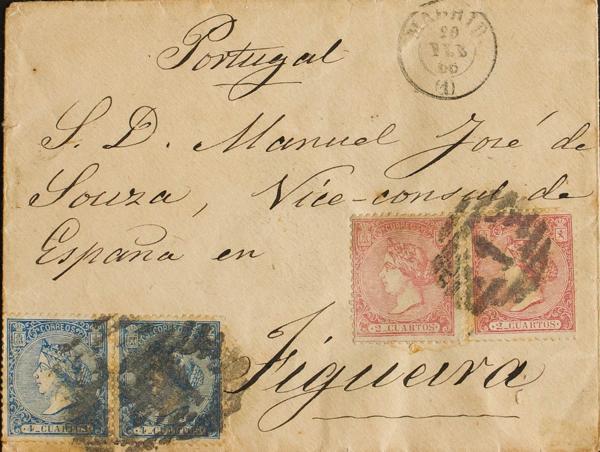 Portugal
MADRID
20
FEB
66
(1)
S. D. Manuel José de
Souza, Vice-consul de
España en
Figueira
2 CUARTOS
2 CUARTOS
CORREOS
4 CUARTOS
4 CUARTOS